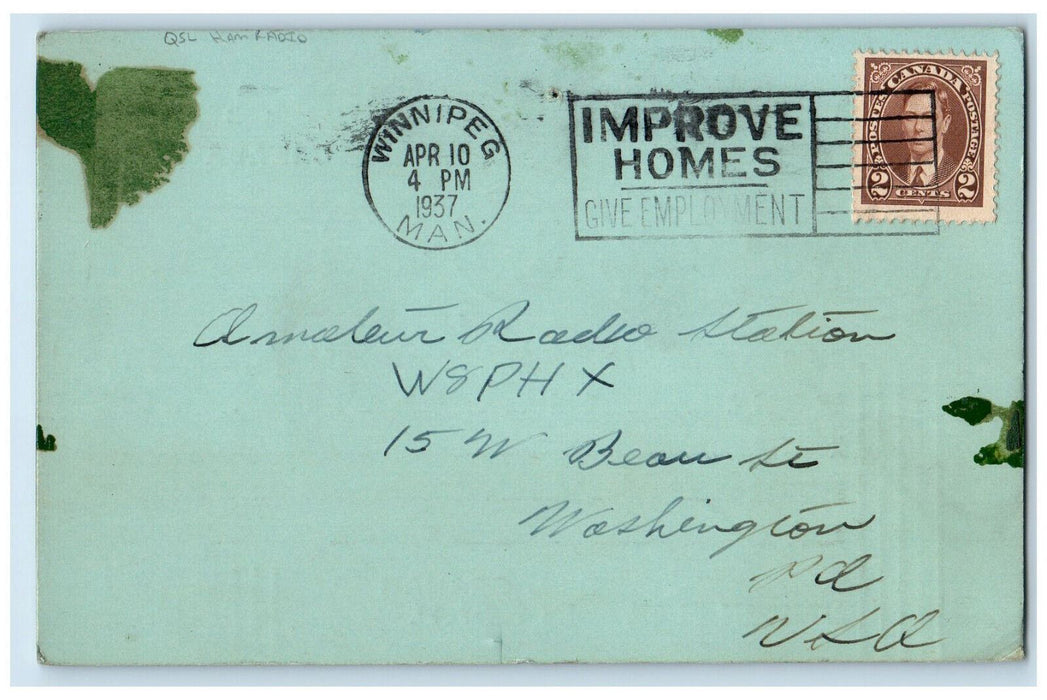 QSL HAM RADIO
WINNIPEG
APR 10
4 PM
1937
MAN.
IMPROVE
HOMES
GIVE EMPLOYMENT
POSTES CANADA POSTAGE
2 CENTS 2
Amateur Radio Station
W8PHX
15 W Beau St
Washington
Pa
USA